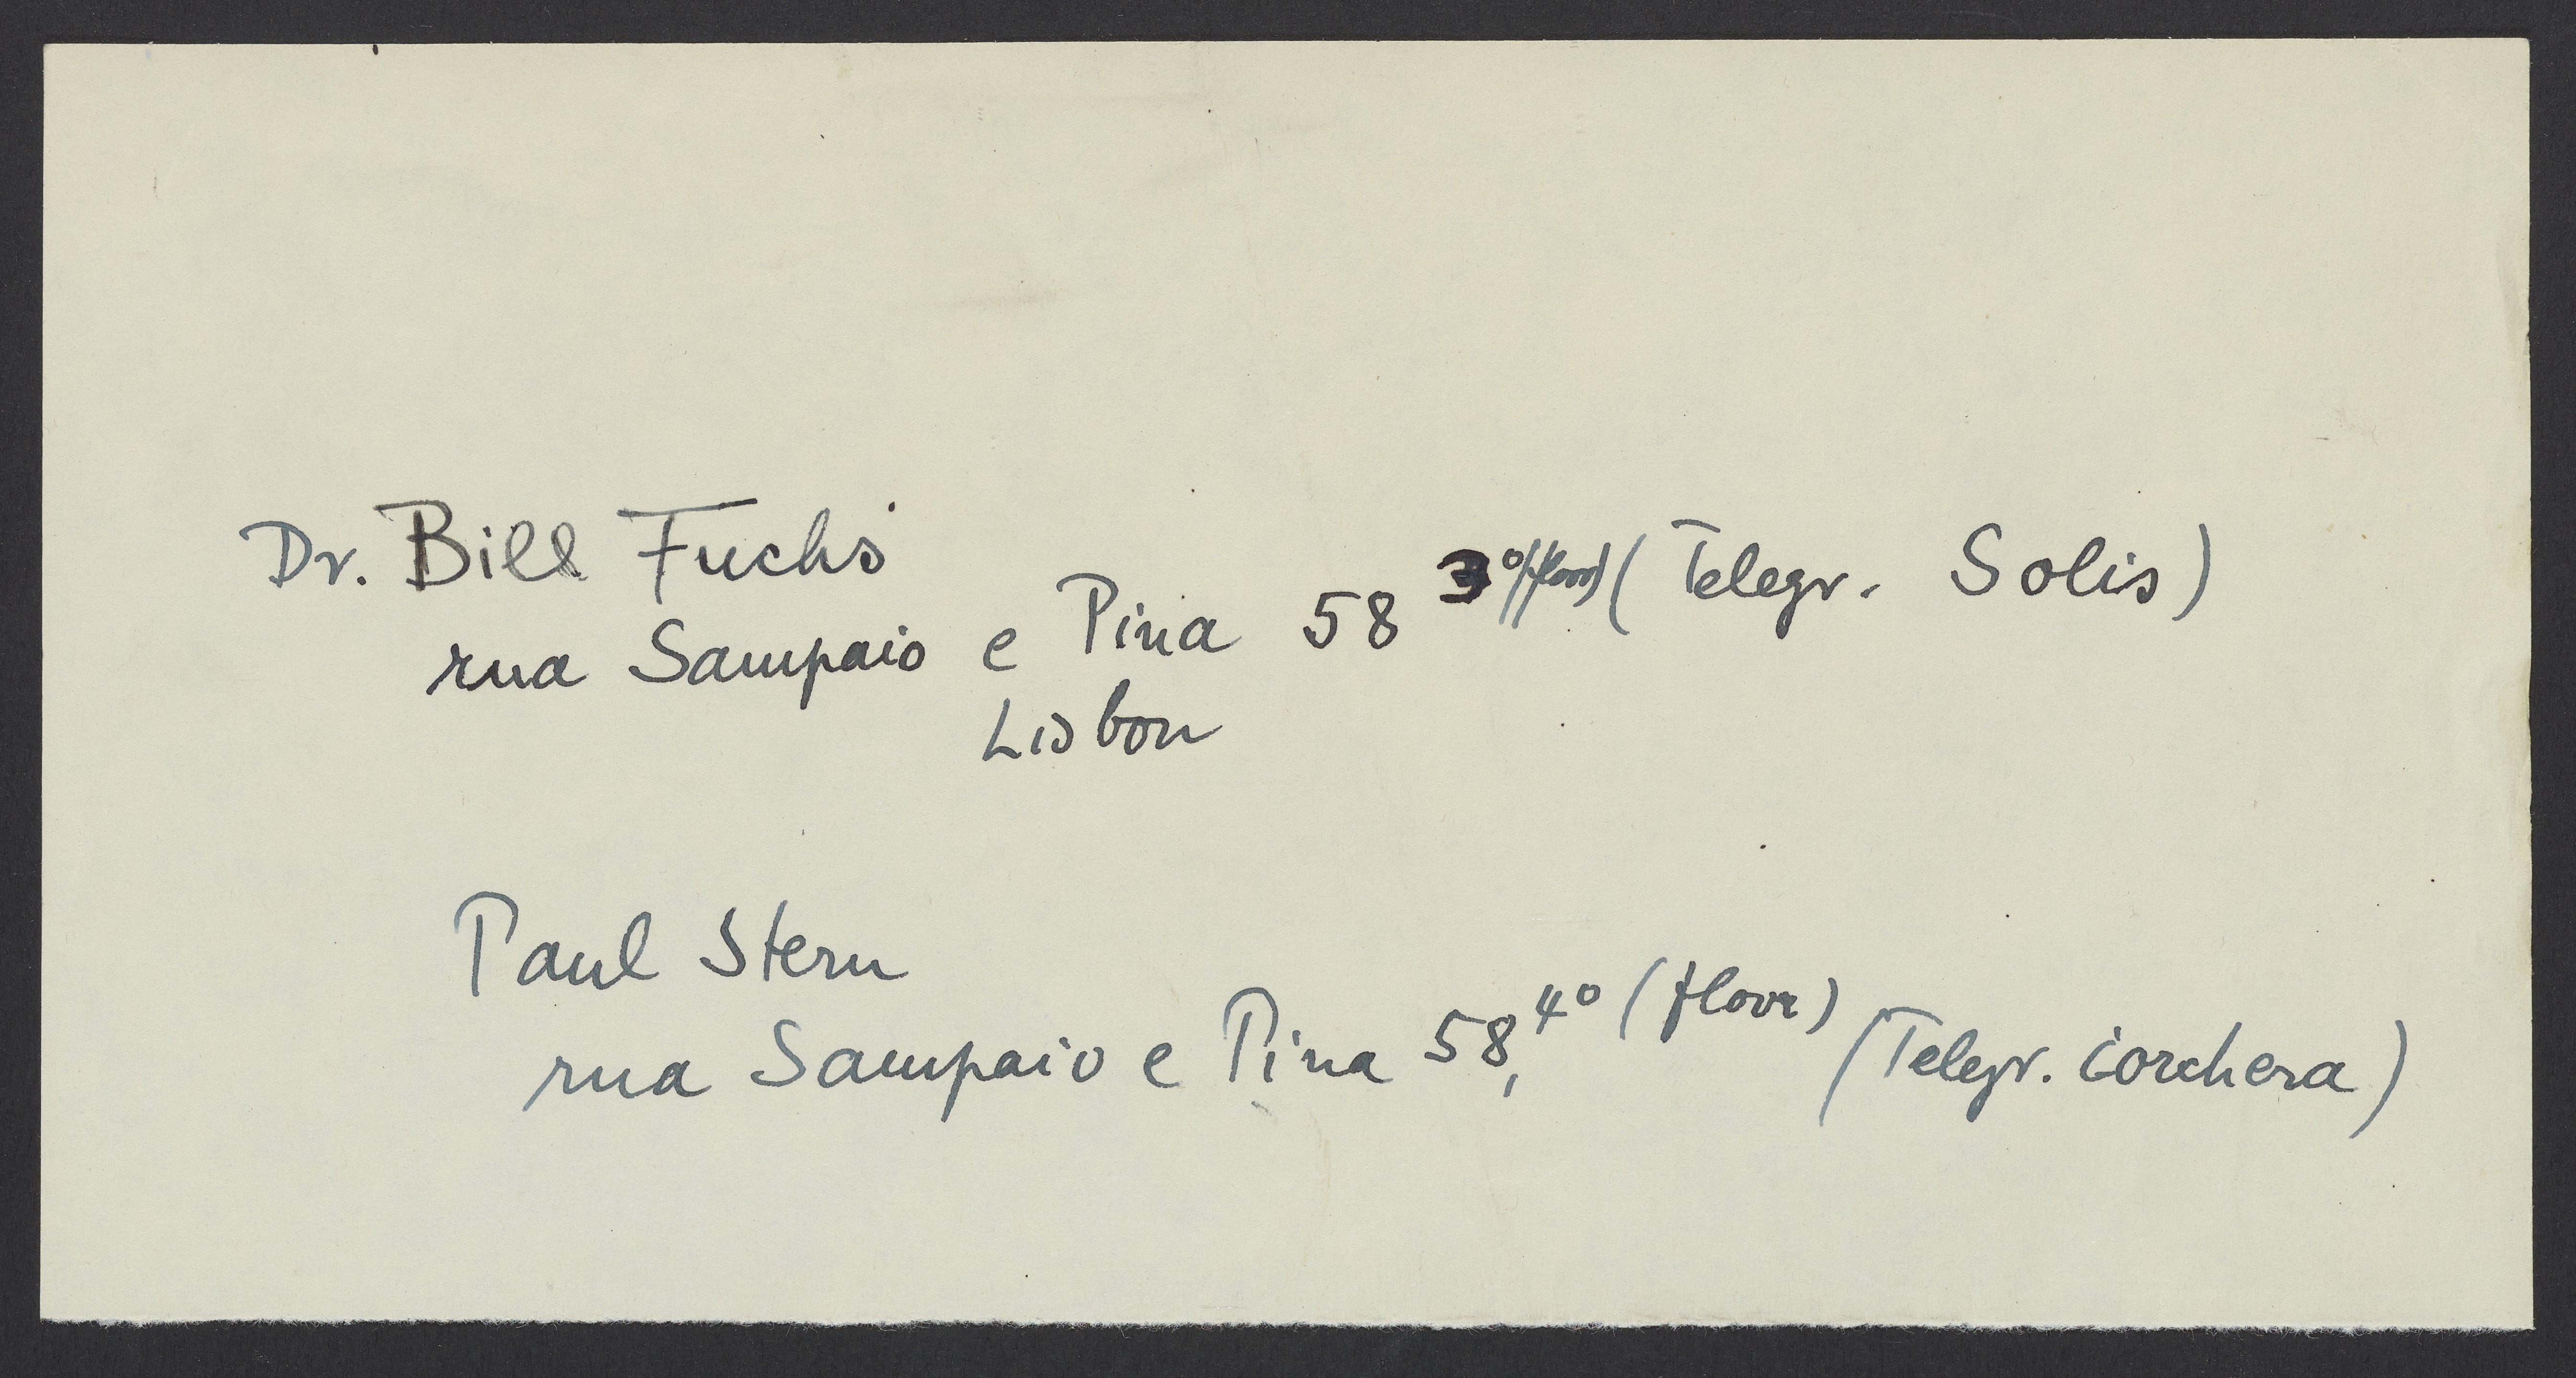 Dr. Bill Fuchs
rua Sampaio e Pina 58 3º (floor) (Telegr. Solis)
Lisbon
Paul Stern
rua Sampaio e Pina 58, 4º (floor) (Telegr. Corchera)